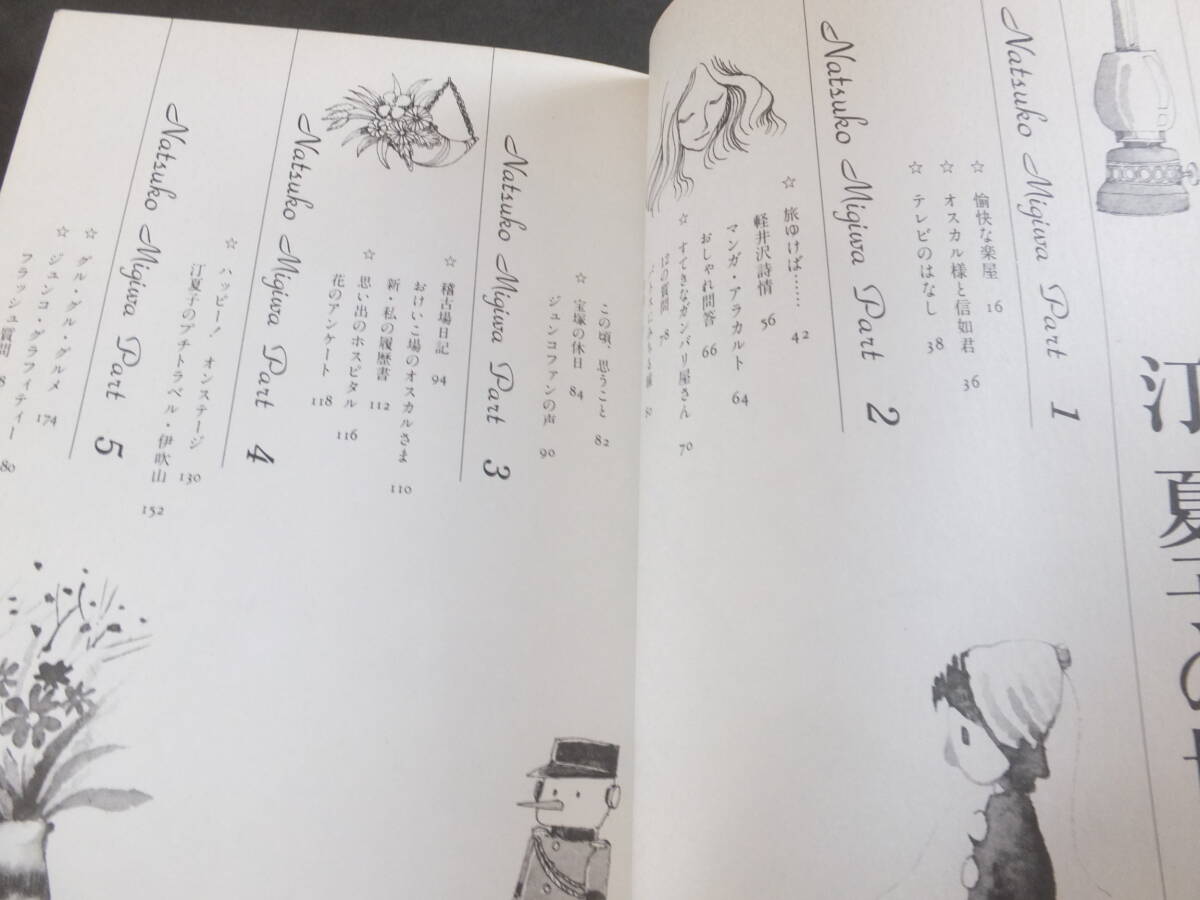 汀夏子の
Natsuko Migiwa Part 1
☆ 愉快な楽屋 16
☆ オスカル様と信如君 36
☆ テレビのはなし 38
Natsuko Migiwa Part 2
☆ 旅ゆけば…… 42
軽井沢詩情 56
マンガ・アラカルト 64
おしゃれ問答 66
☆ すてきなガンバリ屋さん 70
の質問 78
この頃、思うこと 82
☆ 宝塚の休日 84
ジュンコファンの声 90
Natsuko Migiwa Part 3
☆ 稽古場日記 94
おけいこ場のオスカルさま 110
新・私の履歴書 112
☆ 思い出のホスピタル 116
花のアンケート 118
Natsuko Migiwa Part 4
☆ ハッピー! オンステージ 130
汀夏子のプチトラベル・伊吹山 152
Natsuko Migiwa Part 5
☆ グル・グル・グルメ 174
☆ ジュンコ・グラフィティー 80
フラッシュ質問 8